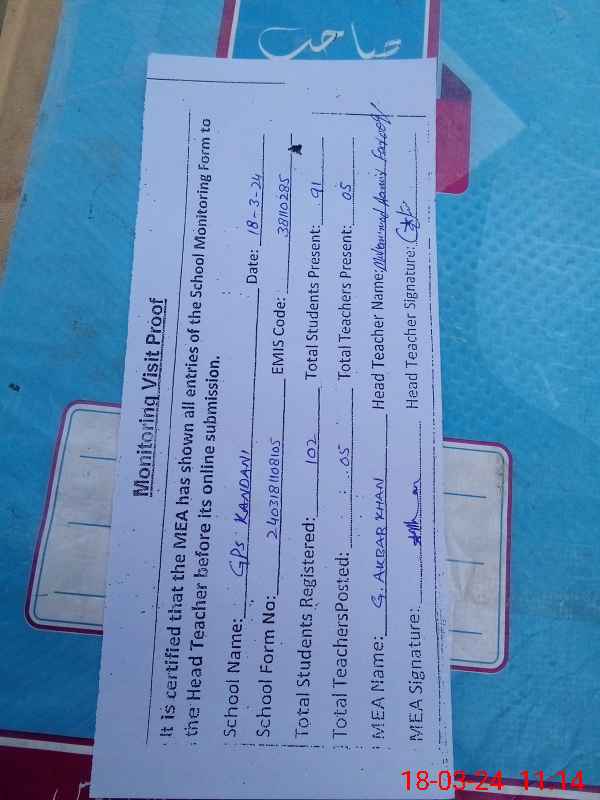 صاحب
Monitoring Visit Proof
It is certified that the MEA has shown all entries of the School Monitoring Form to
the Head Teacher before its online submission.
School Name: GPS KANDANI Date: 18-3-24
School Form No: 2403181108105 EMIS Code: 38110285
Total Students Registered: 102 Total Students Present: 91
Total TeachersPosted: 05 Total Teachers Present: 05
MEA Name: G. AKBAR KHAN Head Teacher Name: Muhammad Hamid Farooq
MEA Signature: Head Teacher Signature:
18-03-24 11:14